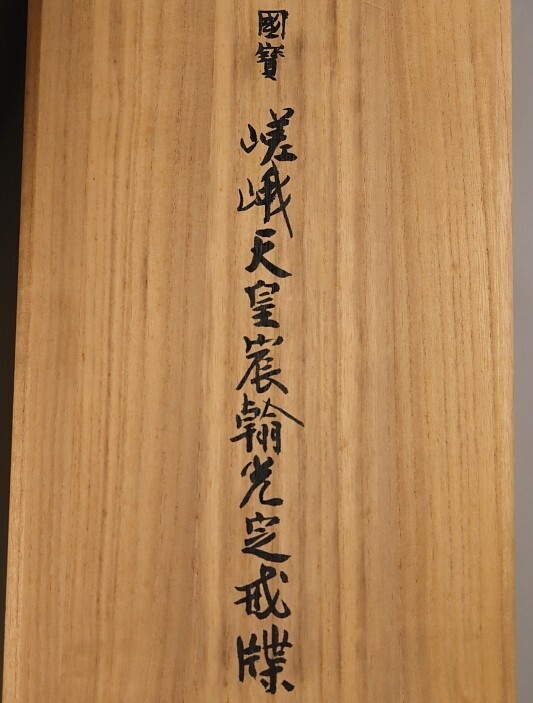 國寳 嵯峨天皇宸翰光定戒牒